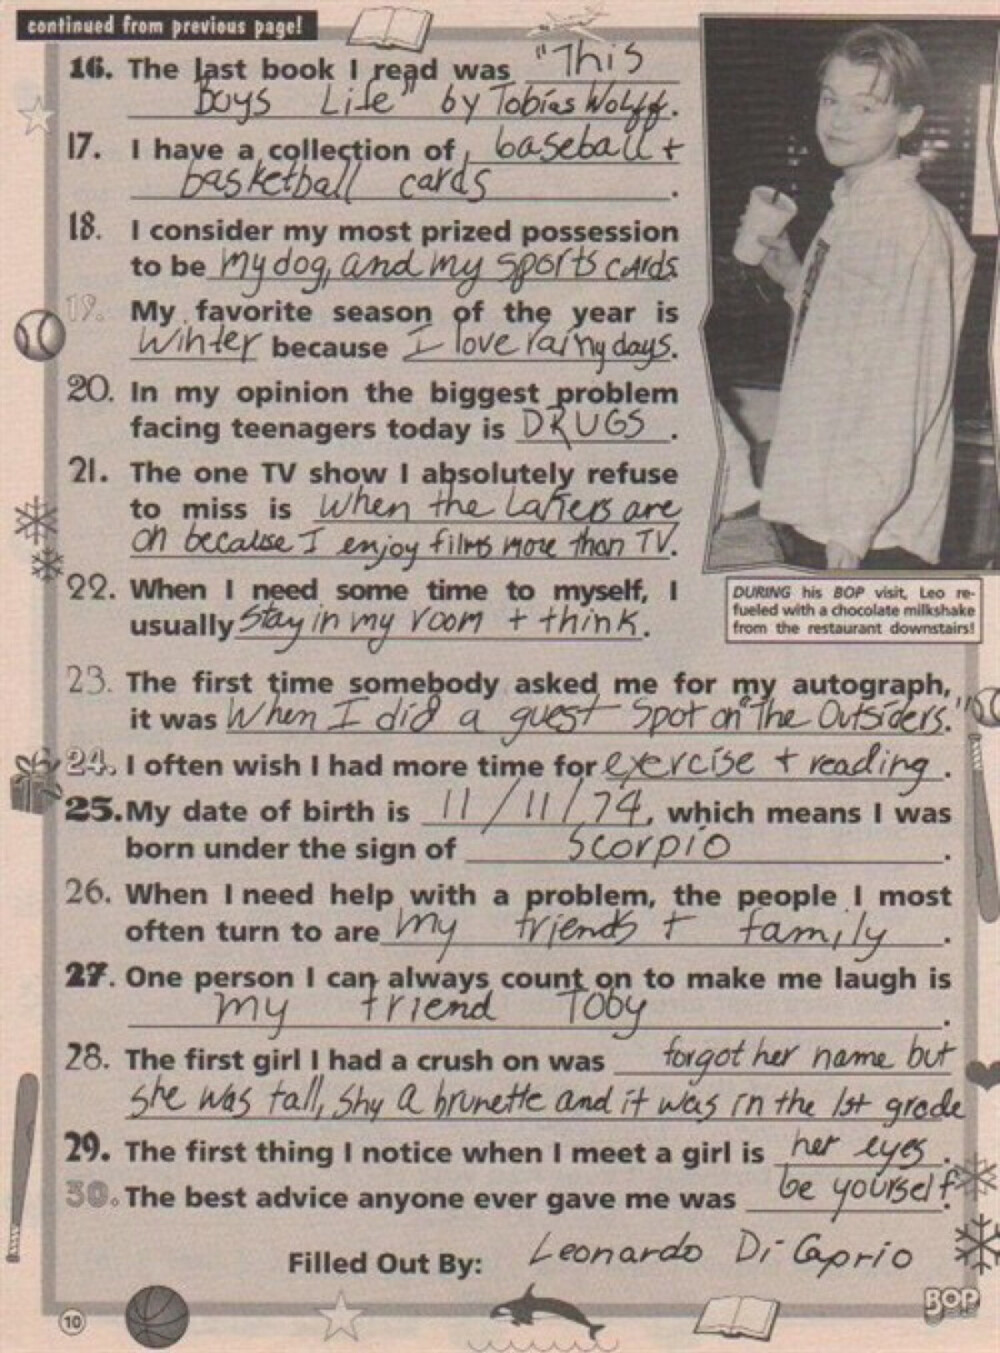 continued from previous page!
16. The last book I read was "This
Boys Life" by Tobias Wolff.
17. I have a collection of baseball +
basketball cards.
18. I consider my most prized possession
to be My dog, and my sports cards
19. My favorite season of the year is
Winter because I love rainy days.
20. In my opinion the biggest problem
facing teenagers today is DRUGS.
21. The one TV show I absolutely refuse
to miss is When the Lakers are
on because I enjoy films more than TV.
22. When I need some time to myself, I
usually Stay in my room + think.
DURING his BOP visit, Leo re-
fueled with a chocolate milkshake
from the restaurant downstairs!
23. The first time somebody asked me for my autograph,
it was When I did a guest Spot on "The Outsiders."
24. I often wish I had more time for exercise + reading.
25. My date of birth is 11/11/74, which means I was
born under the sign of Scorpio.
26. When I need help with a problem, the people I most
often turn to are My friends + family.
27. One person I can always count on to make me laugh is
My friend Toby.
28. The first girl I had a crush on was forgot her name but
She was tall, shy a brunette and it was in the 1st grade
29. The first thing I notice when I meet a girl is her eyes.
30. The best advice anyone ever gave me was be yourself.
Filled Out By: Leonardo Di Caprio
10
BOP